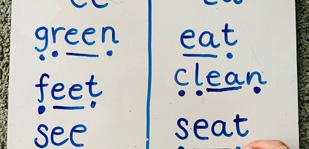 ee ea
green eat
feet clean
see seat